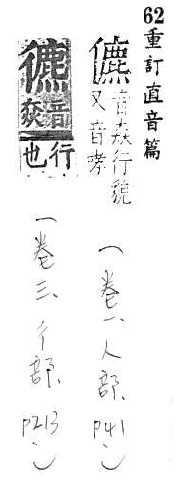 62重訂直音篇
儦音猋行貌
又音
(卷一、人部、P41、)
音猋
行也
(卷三、彳部、P213、)